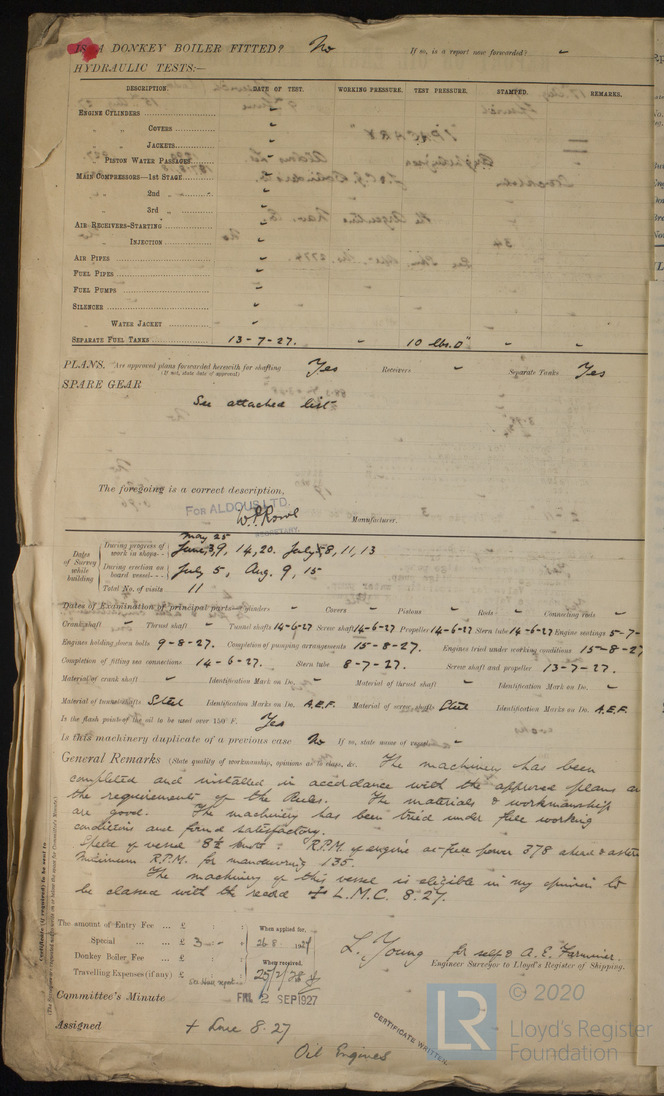 IS A DONKEY BOILER FITTED? No If so, is a report now forwarded? -
HYDRAULIC TESTS:—
DESCRIPTION. DATE OF TEST. WORKING PRESSURE. TEST PRESSURE. STAMPED. REMARKS.
ENGINE CYLINDERS -
" COVERS -
" JACKETS -
PISTON WATER PASSAGES -
MAIN COMPRESSORS—1st STAGE -
2nd " -
3rd " -
AIR RECEIVERS-STARTING -
INJECTION -
AIR PIPES -
FUEL PIPES -
FUEL PUMPS -
SILENCER -
WATER JACKET -
SEPARATE FUEL TANKS 13-7-27. - 10 lbs. □" - -
PLANS. Are approved plans forwarded herewith for shafting Yes Receivers - Separate Tanks Yes
(If not, state date of approval)
SPARE GEAR
See attached list
The foregoing is a correct description,
FOR ALDOUS LTD.
W.P. Rowl Manufacturer.
SECRETARY.
Dates of Survey while building
May 25
During progress of work in shops-- June 3, 9, 14, 20. July 5, 8, 11, 13
During erection on board vessel--- July 5, Aug. 9, 15
Total No. of visits 11
Dates of Examination of principal parts—Cylinders - Covers - Pistons - Rods - Connecting rods -
Crank shaft - Thrust shaft - Tunnel shafts 14-6-27 Screw shaft 14-6-27 Propeller 14-6-27 Stern tube 14-6-27 Engine seatings 5-7-
Engines holding down bolts 9-8-27. Completion of pumping arrangements 15-8-27. Engines tried under working conditions 15-8-27
Completion of fitting sea connections 14-6-27. Stern tube 8-7-27. Screw shaft and propeller 13-7-27.
Material of crank shaft - Identification Mark on Do. - Material of thrust shaft - Identification Mark on Do. -
Material of tunnel shafts Steel Identification Marks on Do. A.E.F. Material of screw shafts Steel Identification Marks on Do. A.E.F.
Is the flash point of the oil to be used over 150° F. Yes
Is this machinery duplicate of a previous case No If so, state name of vessel -
General Remarks (State quality of workmanship, opinions as to class, &c. The machinery has been
completed and installed in accordance with the approved plans and
the requirements of the Rules. The materials & workmanship
are good. The machinery has been tried under full working
conditions and found satisfactory.
Speed of vessel 8½ knots: R.P.M. of engine at full power 378 ahead & astern
Minimum R.P.M. for manoeuvring 135.
The machinery of this vessel is eligible in my opinion to
be classed with the record + L.M.C. 8.27.
The amount of Entry Fee ... £ : : When applied for,
Special ... ... £ 3 - : 26 8 1927
Donkey Boiler Fee ... £ : : When received,
Travelling Expenses (if any) £ 25/2/28
L. Young for self & A. E. Farminer.
Engineer Surveyor to Lloyd's Register of Shipping.
Committee's Minute FRI. 2 SEP 1927
Assigned + Lmc 8.27
Oil Engines
CERTIFICATE WRITTEN.
LR
© 2020
Lloyd's Register
Foundation